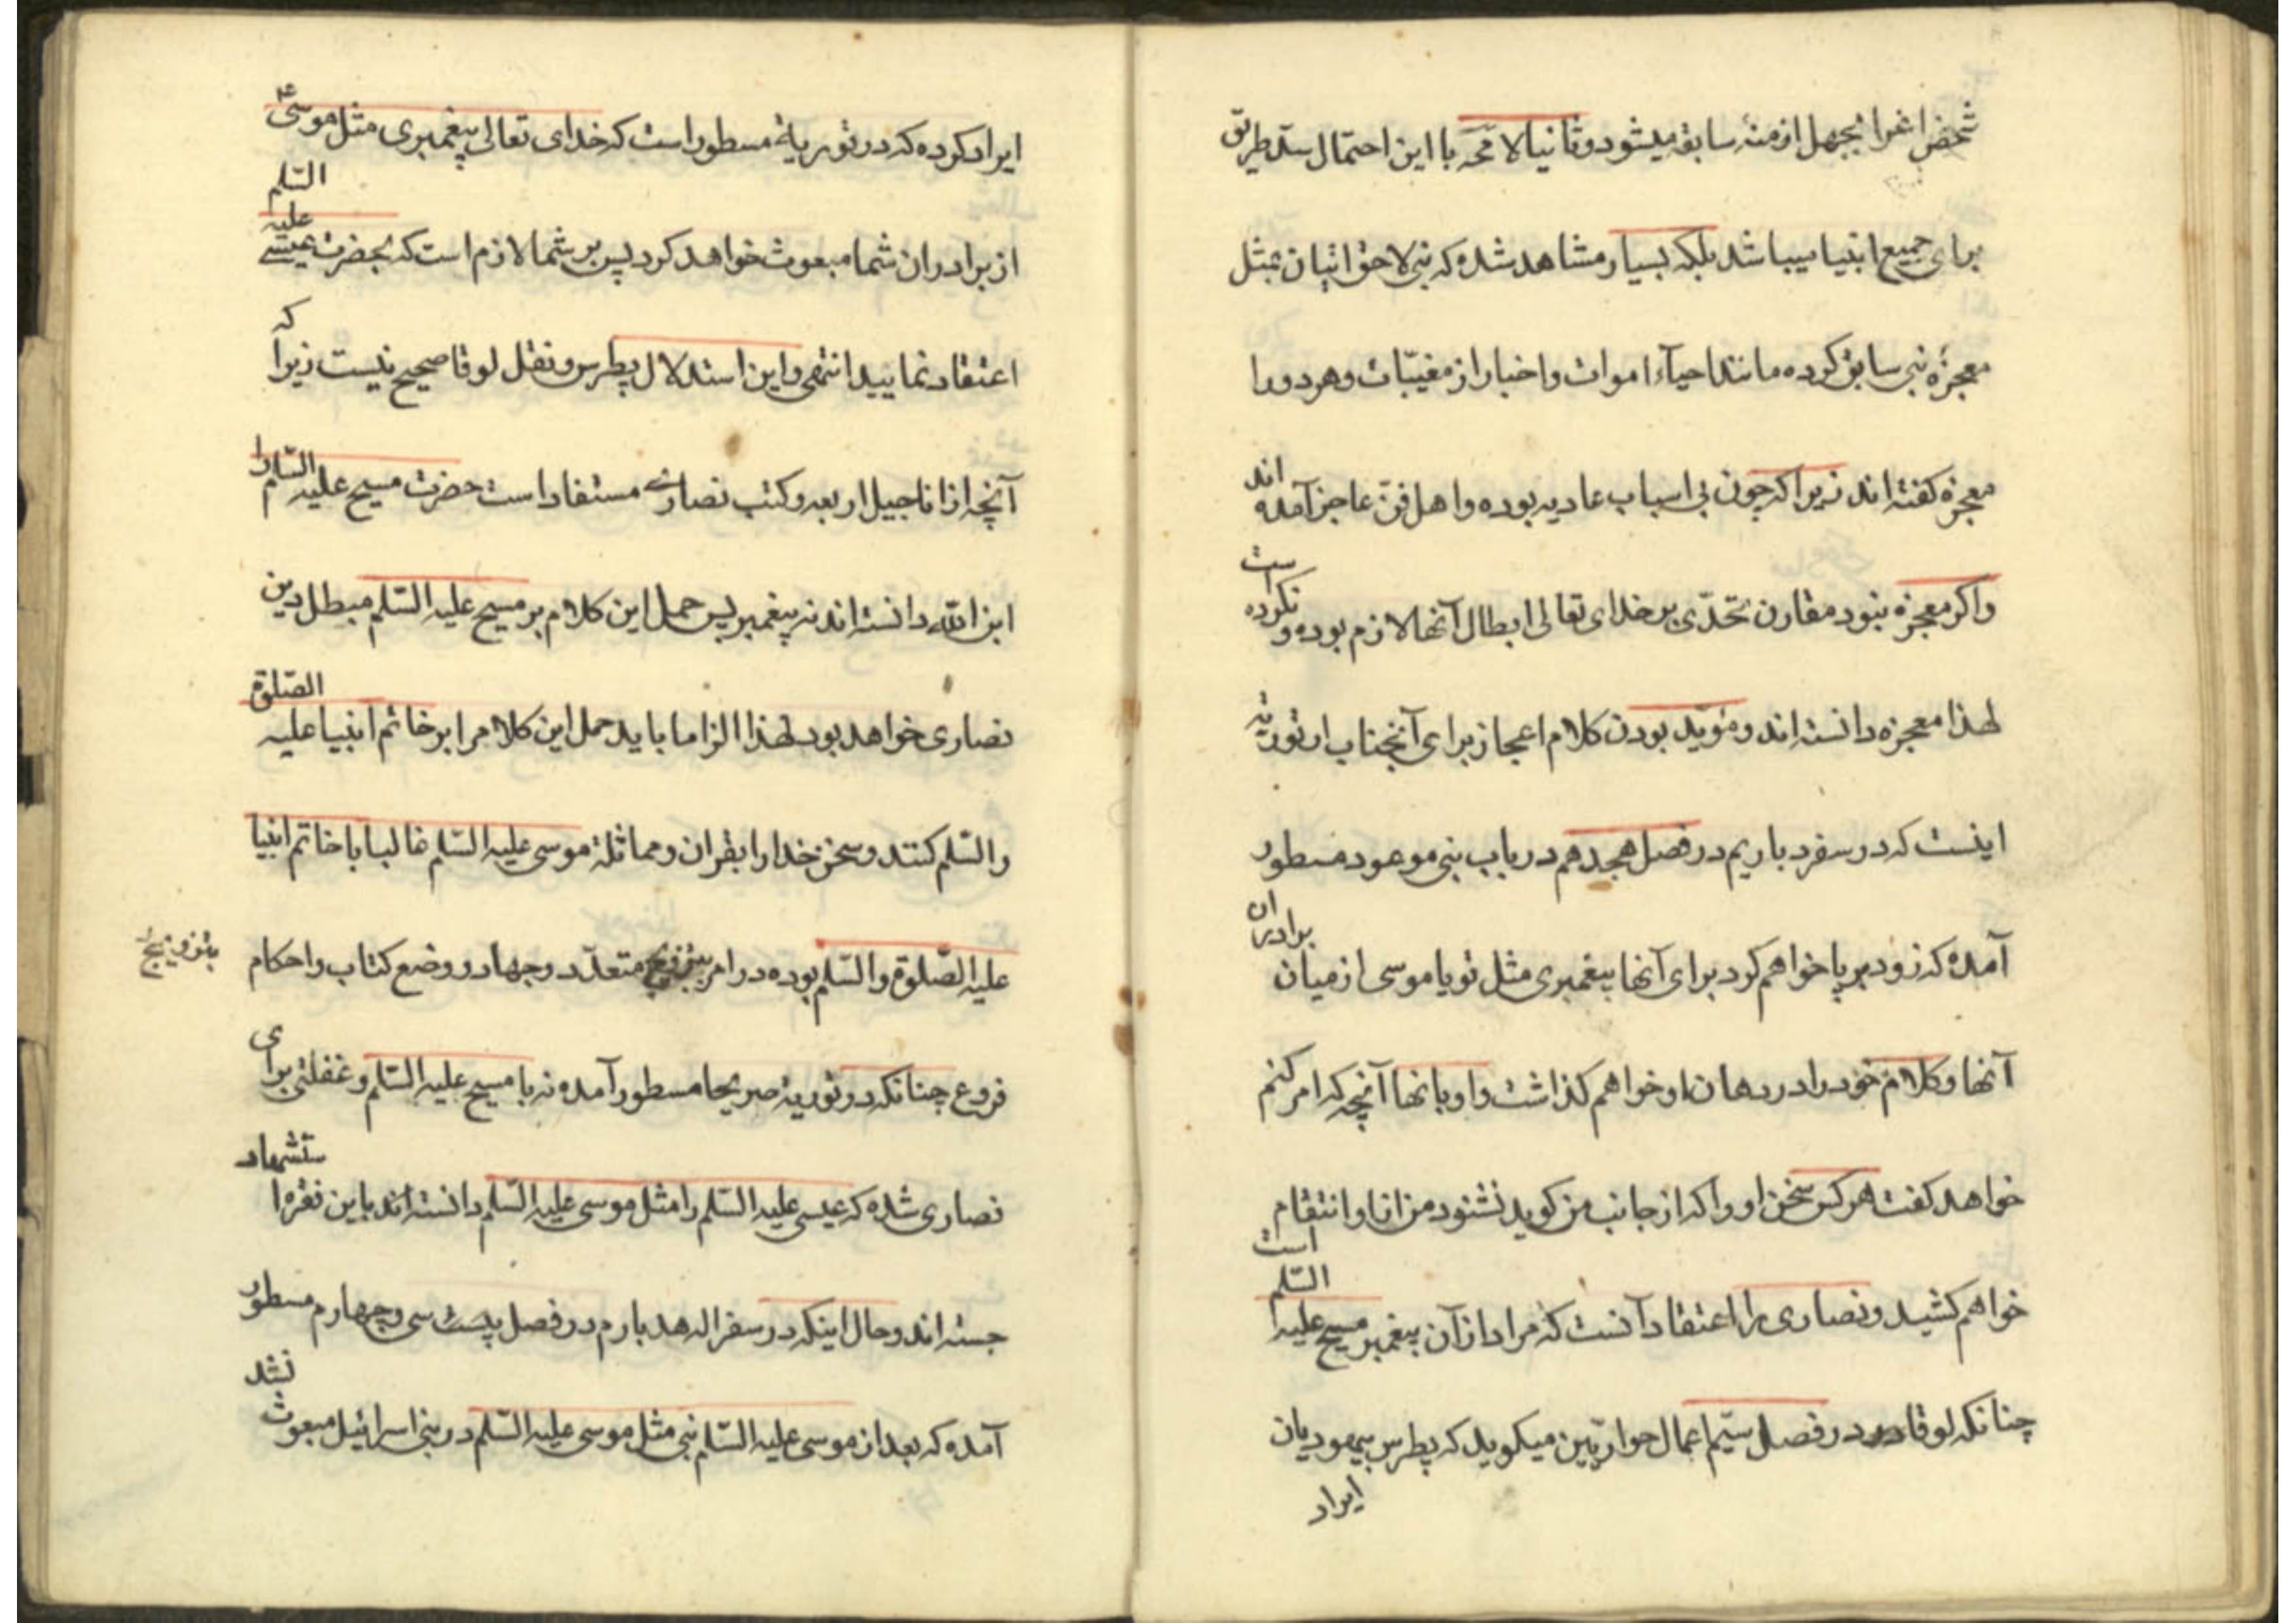 شخص اغرا بجهل ازمنهٔ سابقه میشود و ثانیا لامحه با این احتمال سدّ طریق
برای جمیع انبیا میباشد بلکه بسیار مشاهد شده که نبی لاحق اتیان بمثل
معجزهٔ نبی سابق کرده مانند احیآء اموات و اخبار از مغیّبات و هر دو را
معجزه کفته اند زیرا که چون بی اسباب عادیه بوده و اهل فنّ عاجز آمده اند
و اکر معجزه نبود مقارن تحدّی بر خدای تعالی ابطال آنها لازم بوده و نکرده است
لهذا معجزه دانسته اند و مؤیّد بودن کلام اعجاز برای آنجناب از توریة
اینست که در سفر دباریم در فصل هجدهم در باب نبی موعود مسطور
آمده که زود برپا خواهم کرد برای آنها پیغمبری مثل تو یا موسی از میان برادران
آنها و کلام خود را در دهان او خواهم کذاشت و او بانها آنچه که امر کنم
خواهد کفت هر کس سخن او را که از جانب من کوید نشنود من از او انتقام
خواهم کشید و نصاری را اعتقاد آنست که مراد از آن پیغمبر مسیح علیه السّلم است
چنانکه لوقا در فصل سیّم اعمال حواریّین میکوید که پطرس بیهودیان
ایراد
ایراد کرده که در توریة مسطور است که خدای تعالی پیغمبری مثل موسی ع
از برادران شما مبعوث خواهد کرد پس بر شما لازم است که بحضرت عیسی علیه السّلم
اعتقاد نمایید انتهی و این استدلال پطرس و نقل لوقا صحیح نیست زیرا که
آنچه از اناجیل اربعه و کتب نصاری مستفاد است حضرت مسیح علیه السّلم را
ابن اللّه دانسته اند نه پیغمبر پس حمل این کلام بر مسیح علیه السّلم مبطل دین
نصاری خواهد بود لهذا الزاما باید حمل این کلام را بر خاتم انبیا علیه الصّلوة
والسّلم کنند و سخن خدا را بقران و مماثلة موسی علیه السّلم غالبا با خاتم انبیا
علیه الصّلوة والسّلم بوده در امر بتزویج متعدّد و جهاد و وضع کتاب و احکام
بتزویج
فروع چنانکه در توریة صریحا مسطور آمده نه با مسیح علیه السّلم و غفلتی برای
نصاری شده که عیسی علیه السّلم را مثل موسی علیه السّلم دانسته اند باین فقره استشهاد
جسته اند و حال اینکه در سفر اله هدبارم در فصل بیست سی و چهارم مسطور
آمده که بعد از موسی علیه السّلم نبی مثل موسی علیه السّلم در بنی اسرائیل مبعوث نشد